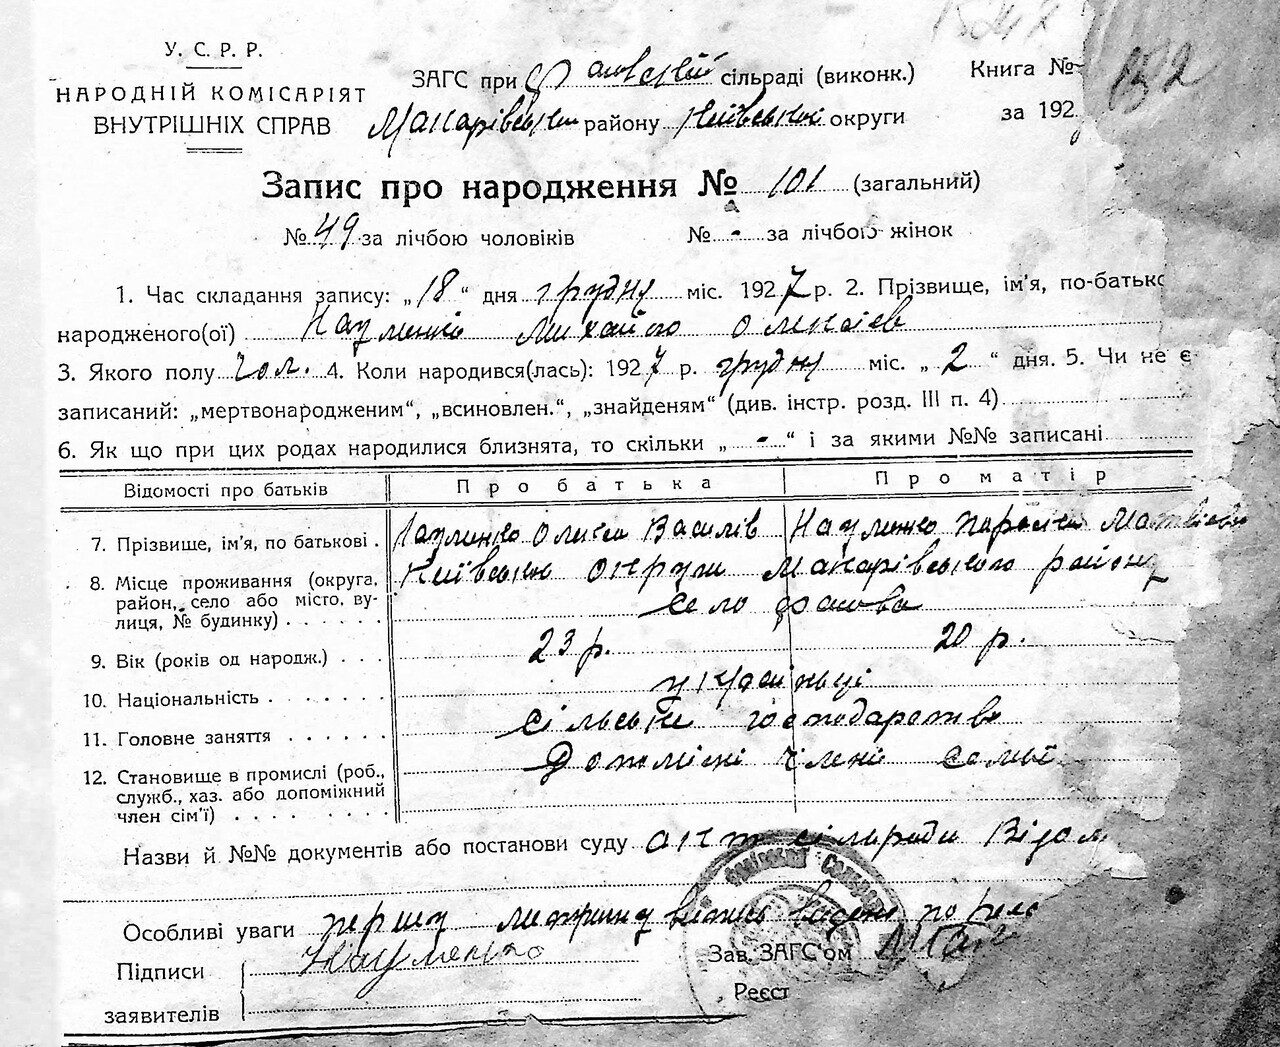 У. С. Р. Р.
НАРОДНІЙ КОМІСАРІЯТ
ВНУТРІШНІХ СПРАВ
ЗАГС при Фасовській сільраді (виконк.)
Макарівськи району Київської округи
Книга №
152
за 192
Запис про народження № 101 (загальний)
№ 49 за лічбою чоловіків № - за лічбою жінок
1. Час складання запису: „ 18 “ дня грудня міс. 1927 р. 2. Прізвище, ім'я, по-батько
народженого(ої) Науменко Михайло Олексіев
3. Якого полу чол. 4. Коли народився(лась): 1927 р. грудня міс. „ 2 “ дня. 5. Чи не є
записаний: „мертвонародженим“, „всиновлен.“, „знайденям“ (див. інстр. розд. III п. 4)
6. Як що при цих родах народилися близнята, то скільки „ - “ і за якими №№ записані
Відомості про батьків Про батька Про матір
7. Прізвище, ім'я, по батькові . Науменко Олекса Василів Науменко Параска Матвіевн
8. Місце проживання (округа, район, село або місто, вулиця, № будинку) Київської округи Макарівського району
село Фасова
9. Вік (років од народж.) . . . 23 р. 20 р.
10. Національність . . . . . . українці
11. Головне заняття . . . . . . сільське господарство
12. Становище в промислі (роб., служб., хаз. або допоміжний член сім'ї) . . . . . . . . Допоміжні члени семьі
Назви й №№ документів або постанови суду акт сілради
Особливі уваги першу
Підписи Науменко Зав. ЗАГС'ом
заявителів Реєст